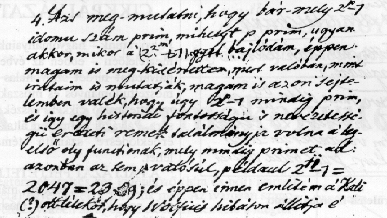 4. Azt meg-mutatni, hogy bár-mely 2^p-1
idomu szám prim, mihelyt p prim, ugyan
akkor, mikor a 2^m-1 bajlódám, éppen
magam is meg-kisértettem, mint valóban, mint
irataim is mutatják, magam is azon sejte-
lemben valék, hogy úgy 2^p-1 mindig prim,
és így egy historiai fontosságú is nevezetessé-
gü eredeti remek találmány ja volna a leg-
első oly functiónak, mely mindig primet ad:
azonban az nem valósul, például 2^11-1=
2047=23·89; és éppen ennen említem a
(?) hogy hibáson állítja é